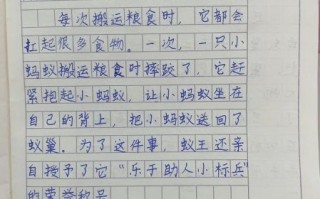 每次搬运粮食时，它都会
扛起很多食物。一次，一只小
蚂蚁搬运粮食时摔跤了，它赶
紧抱起小蚂蚁，让小蚂蚁坐在
自己的背上，把小蚂蚁送回了
蚁巢。为了这件事，蚁王还亲
自授予了它“乐于助人小标兵”
的荣誉称号